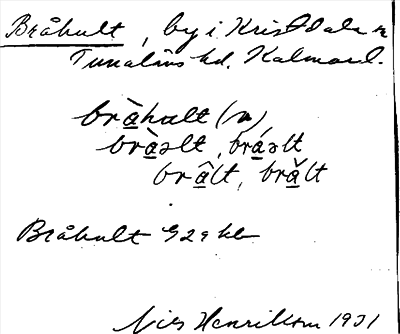 Bråhult, by i Kristdala sn
Tunaläns hd, Kalmar l.
brà̲hʉlt (n),
brà̲əlt, brá̲əlt
brâ̲lt, brǎ̲lt
Bråhult G29
Nils Henriksson 1931